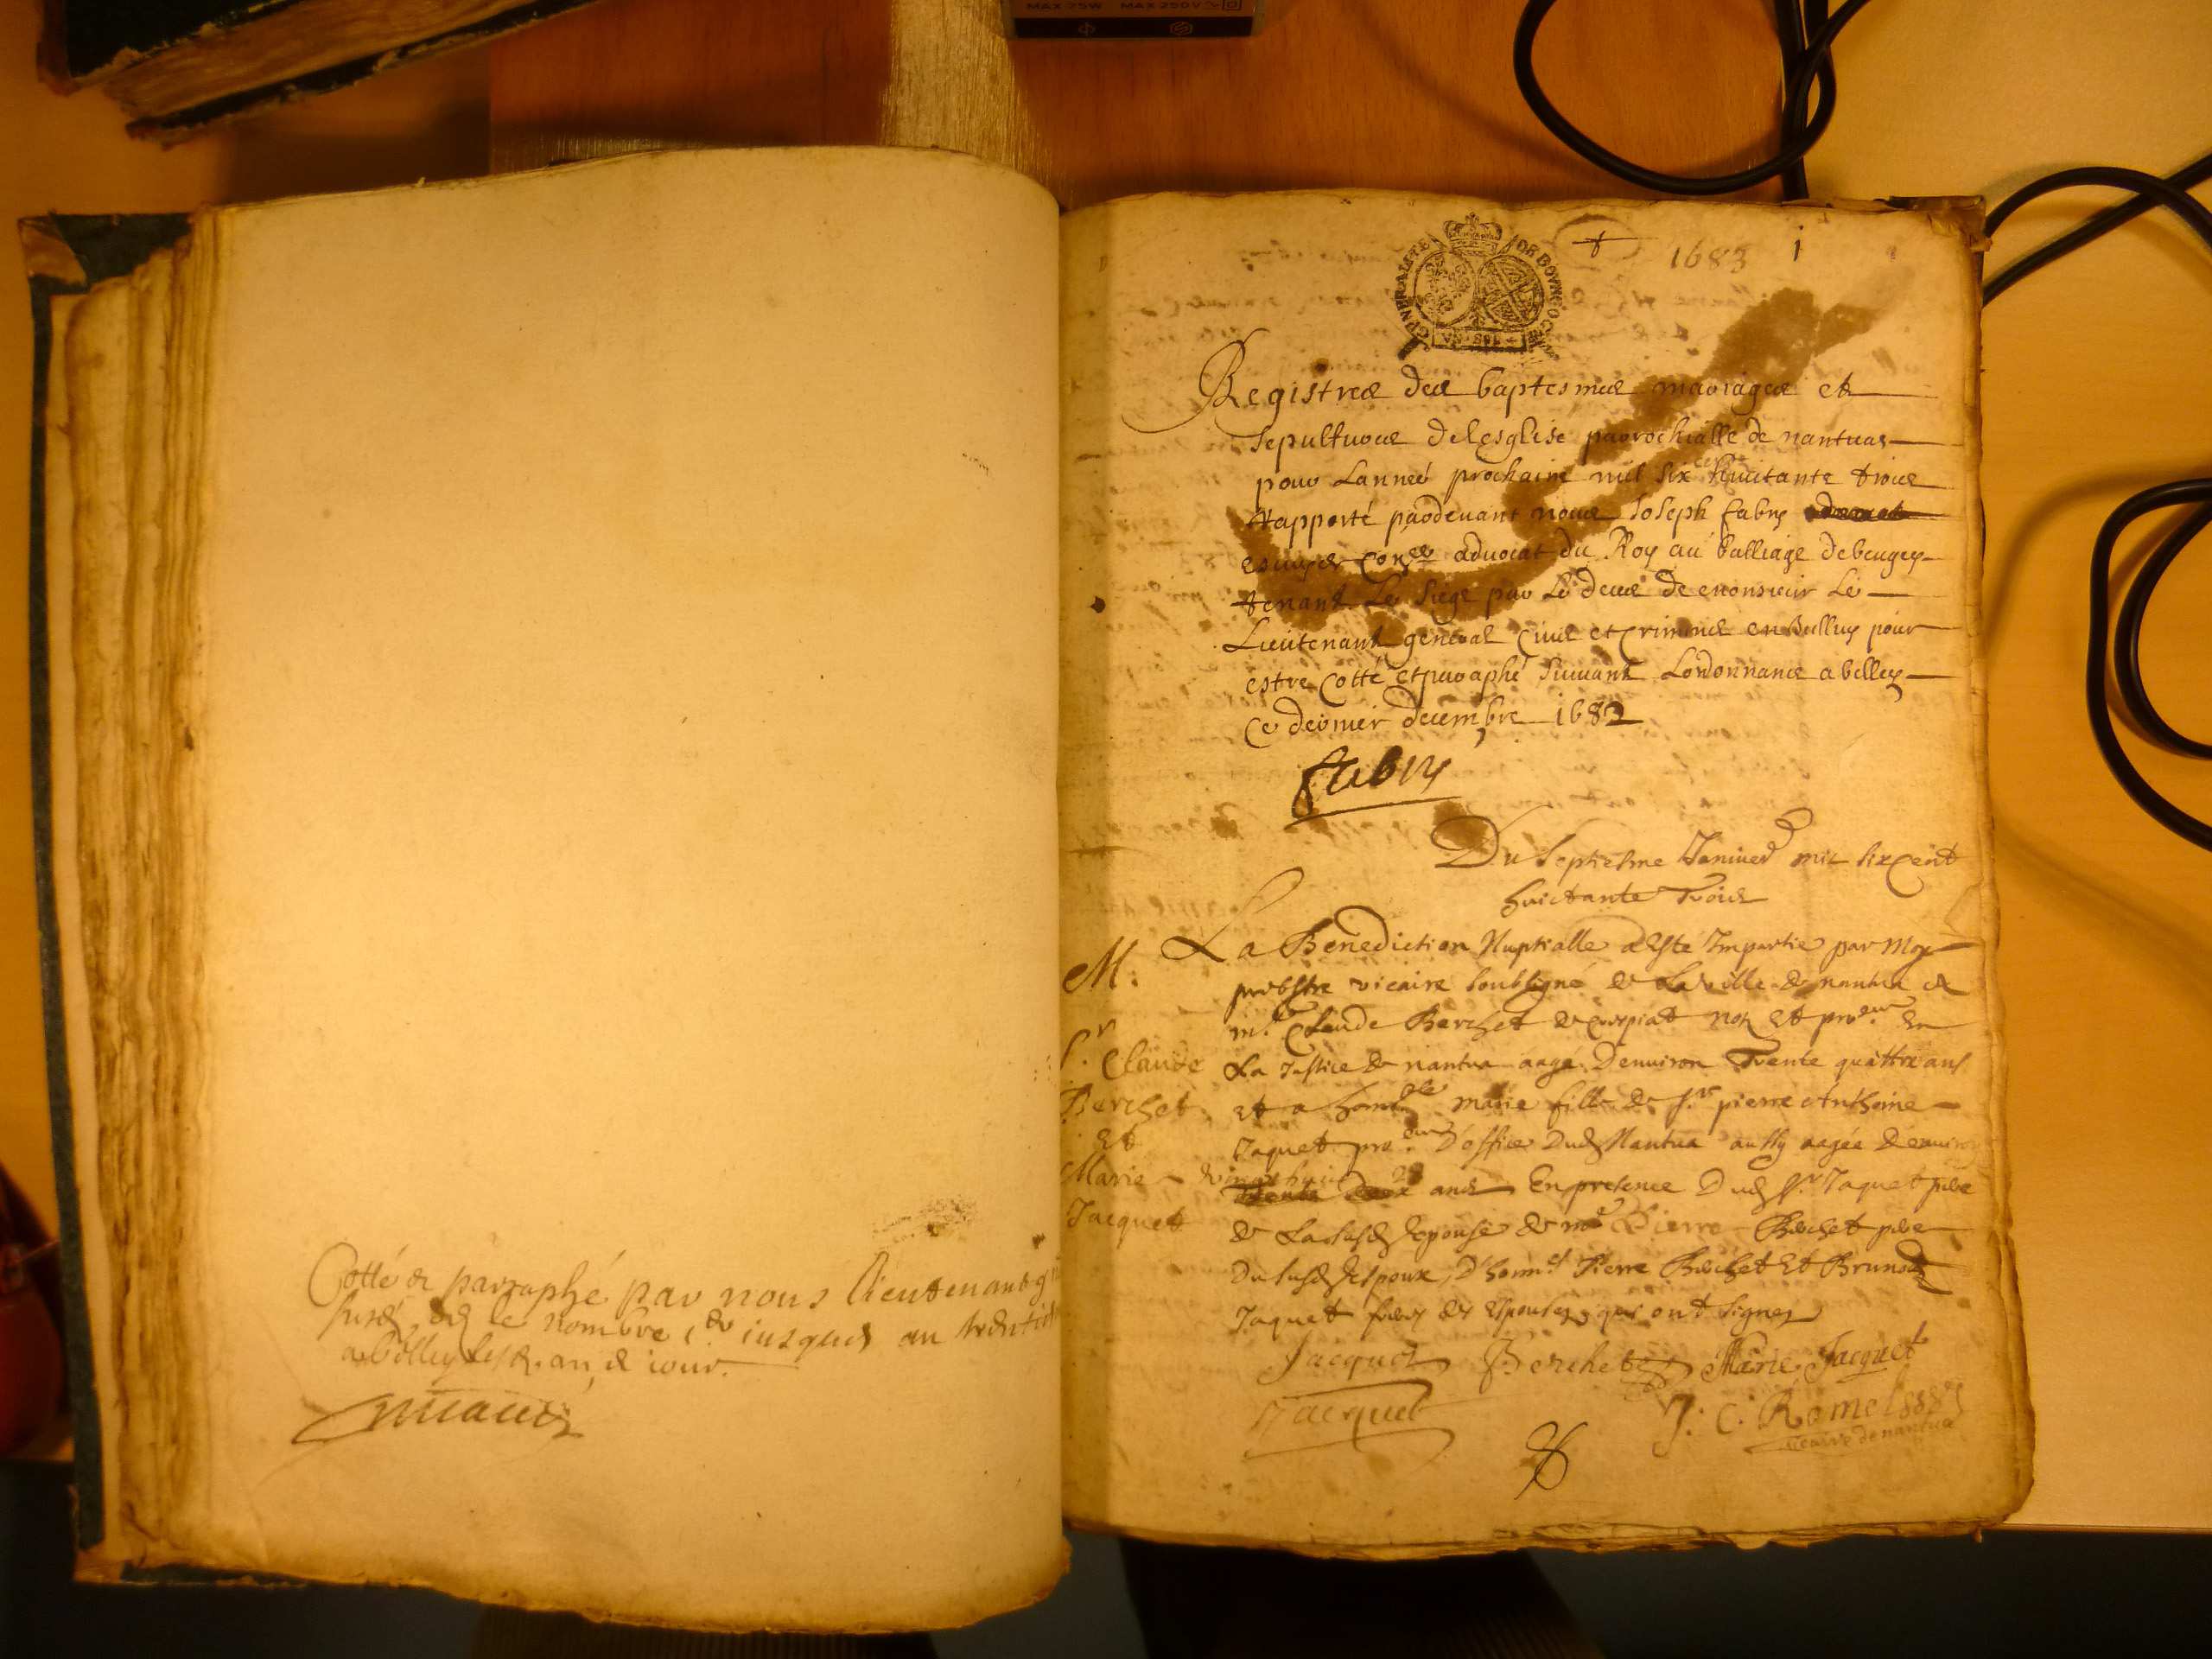 MAX 75W MAX 250V
Cotté & parraphé par nous lieutenant
le nombre jusques au
a Belley an & iour.
GENERALITE DE BOVRGOGNE
1683 i
Registres des baptesmes mariages et
sepultures de lesglise parrochialle de nantuas
pour Lanneé prochaine mil six cents huictante trois
rapporté pardeuant nous Joseph fabry
escuyer Conser aduocat du Roy au balliage de beugey
tenant Le siege par Le deces de monsieur Le
Lieutenant general Ciuil et Criminel en Bellley pour
estre Cotté et paraphé suiuant Lordonnance a belley
Ce dernier decembre 1682
fabry
Du septiesme Januier mil sixcent
huictante Trois
La Benediction Nuptialle a esté Impartie par Moy
prebstre vicaire soubsigné de La ville de nantua a
M:
me Claude Berchet de Corpiat not et procur en
Sr Claude
La Justice de nantua aagé Denuiron Trente quattre ans
Berchet
et a honble marie fille de Sr pierre Anthoine
Et
Jaquet procur d'office Dud Nantua aussy aagée denuiron
Marie
vingt huit 28 ans En presence Dud Sr Jaquet pere
Jacquet
de La susd Espouse de me Pierre Berchet pere
Du susd Espoux, D'honnet Pierre Berchet Et
Jaquet freres des Espouses qui ont signes
Jacquet Berchet Marie Jacquet
Jacquet J. C. Ramel
vicaire de nantua